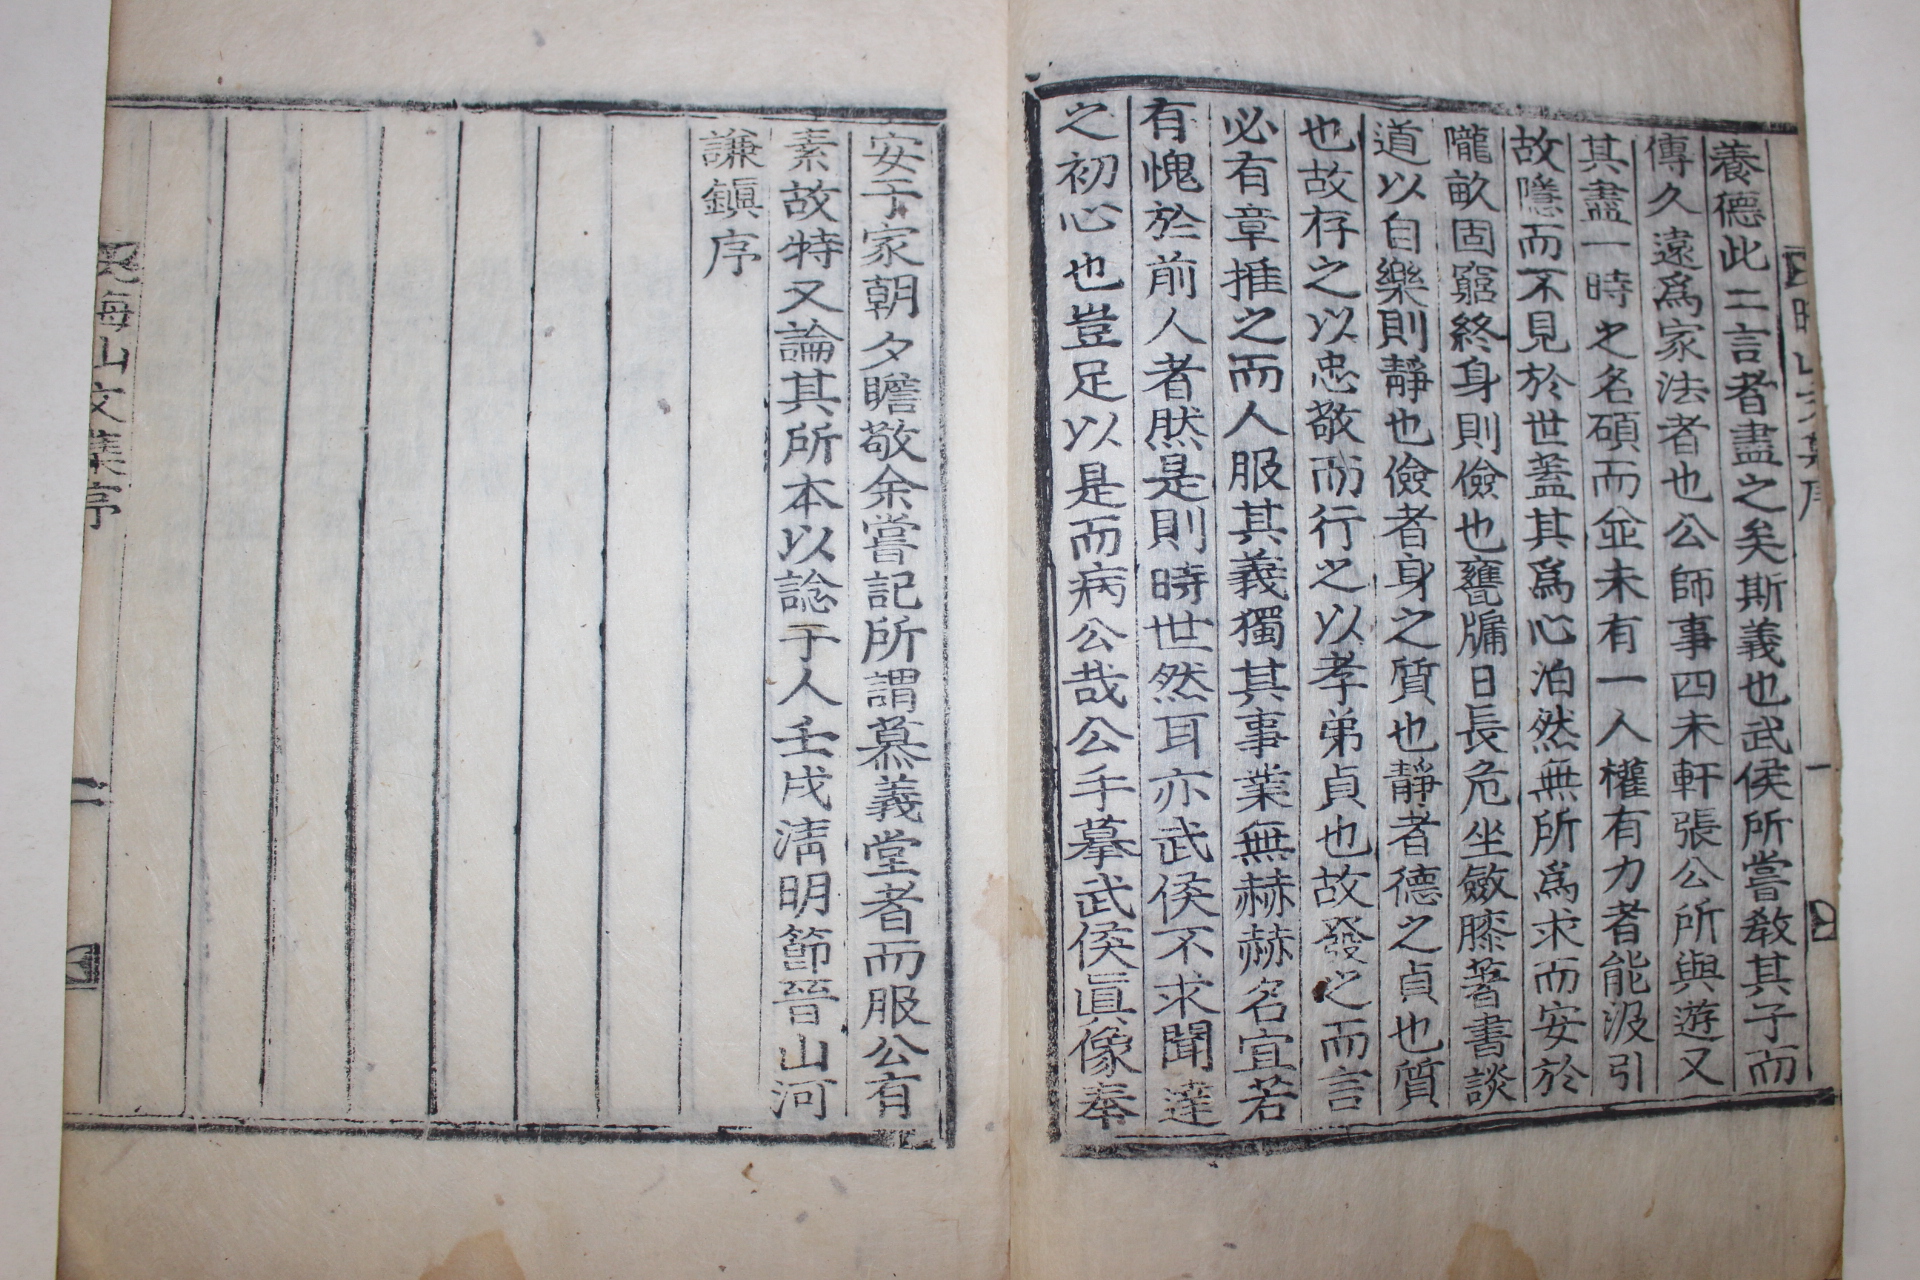 養德此二言者盡之矣斯義也武侯所嘗教其子而
傳久遠爲家法者也公師事四未軒張公所與遊又
其盡一時之名碩而並未有一人權有力者能汲引
故隱而不見於世蓋其爲心泊然無所爲求而安於
隴畝固窮終身則儉也甕牖日長危坐斂膝著書談
道以自樂則靜也儉者身之質也靜者德之貞也質
也故存之以忠敬而行之以孝弟貞也故發之而言
必有章推之而人服其義獨其事業無赫赫名宜若
有愧於前人者然是則時世然耳亦武侯不求聞達
之初心也豈足以是而病公哉公手摹武侯眞像奉
安于家朝夕瞻敬余嘗記所謂慕義堂者而服公有
素故特又論其所本以諗于人壬戌淸明節晉山河
謙鎭序
海山文集序
二